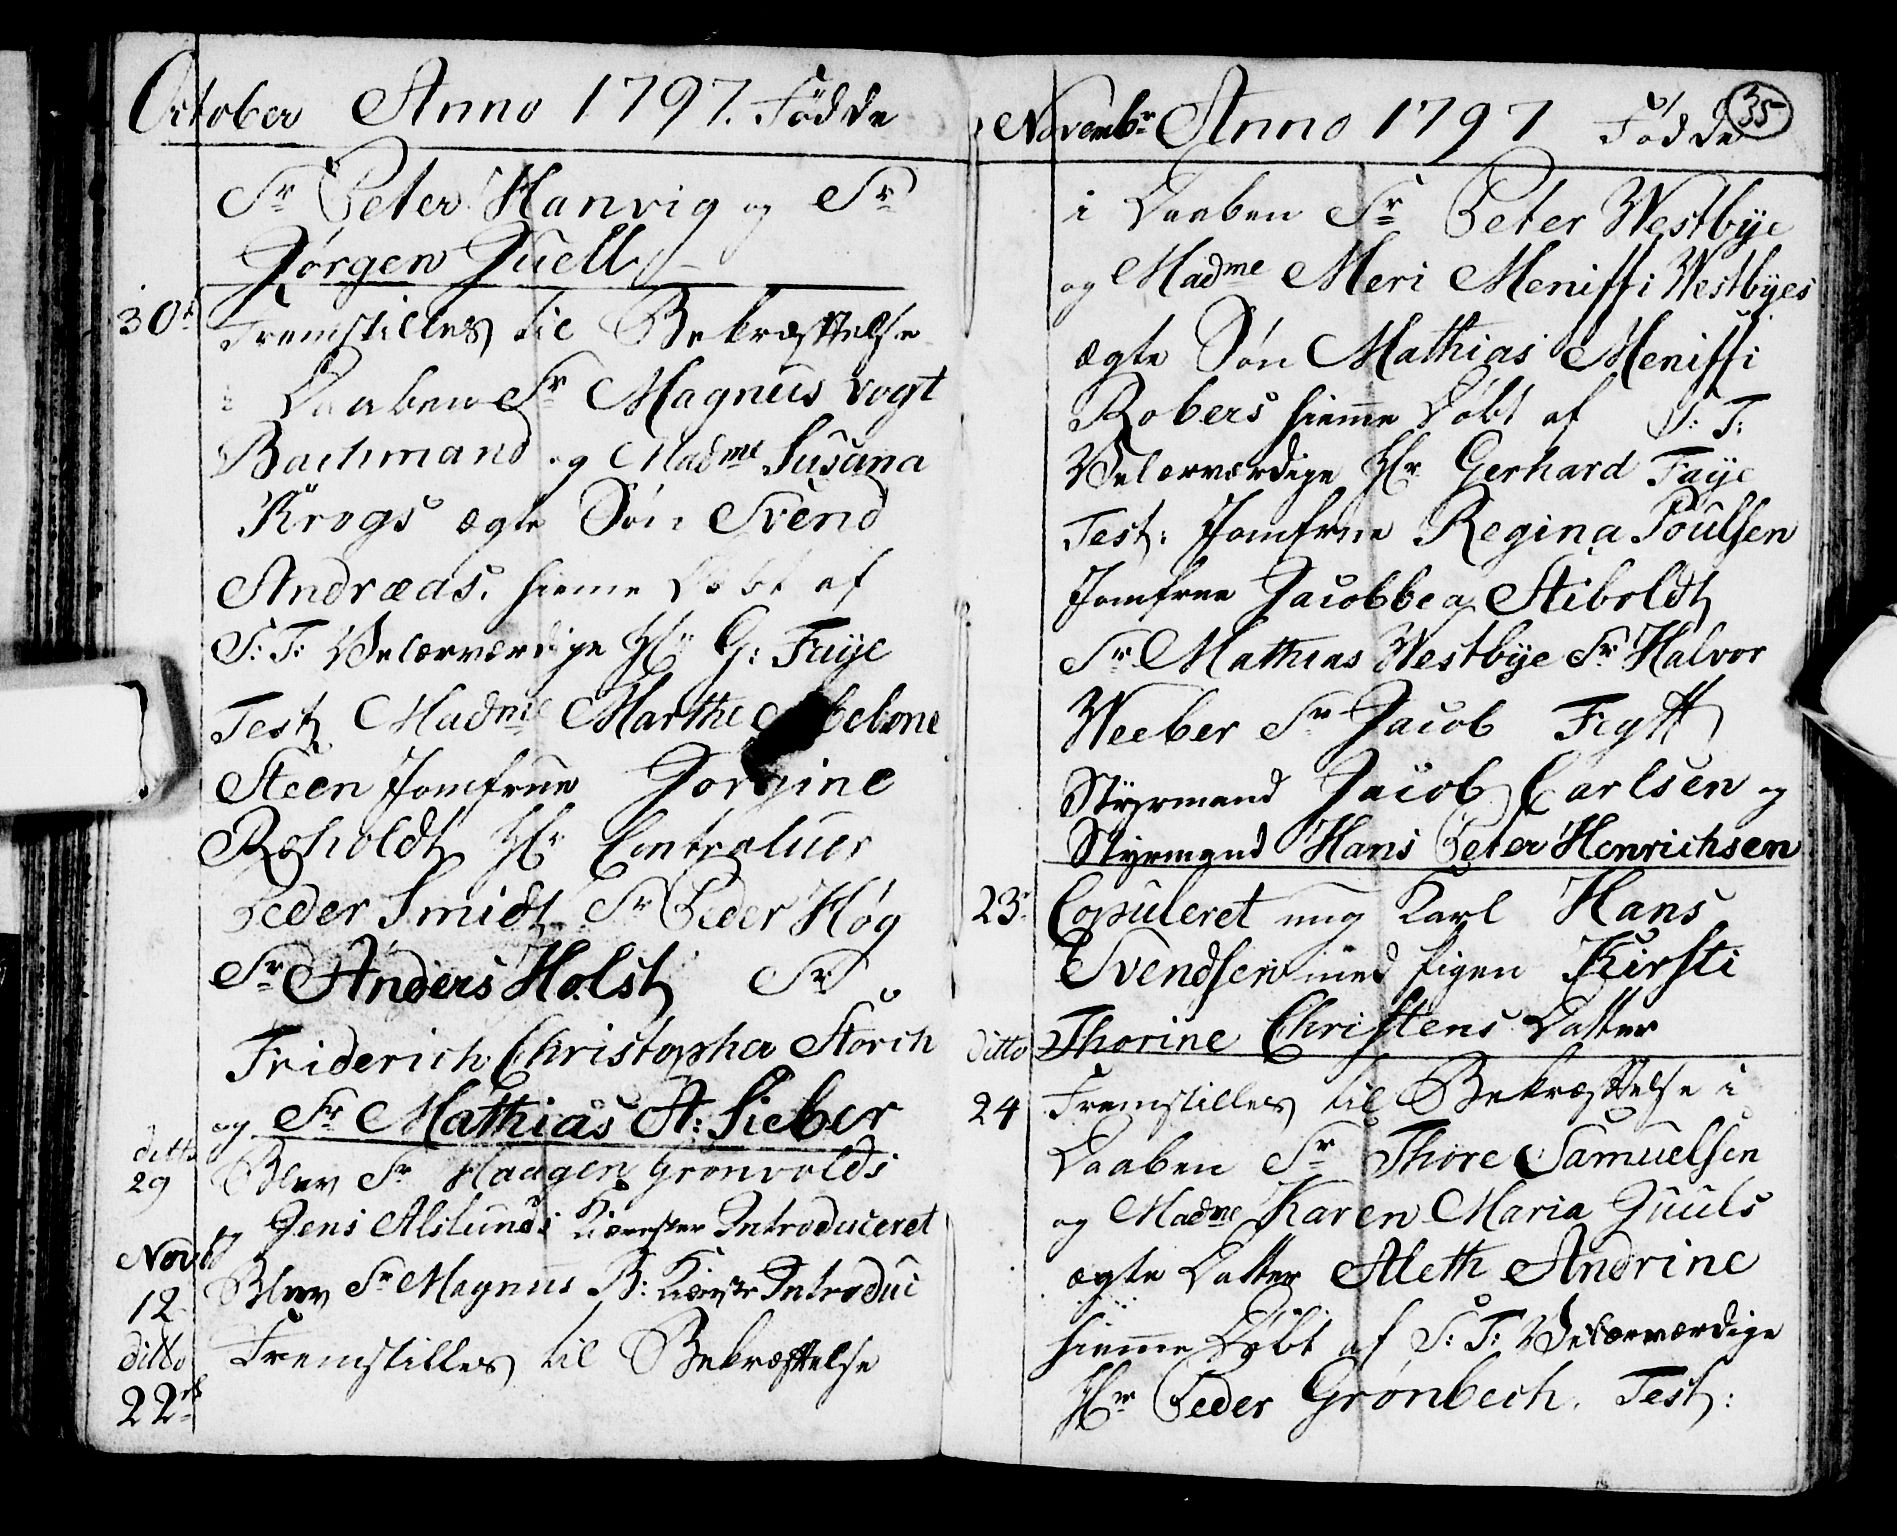 October Anno 1797. Fødde
Sr Peter Hanvig og Sr
Jørgen Juell
30t Fremstilles til Bekræftelse
i Daaben Sr Magnus Vogt
Bachmand og Madme Susana
Krogs ægte Søn Svend
Andræas. hieme Døbt af
S: T: Velærværdige Hr G: Faye
Test Madme Marthe Abelone
Steen Jomfrue Jorgine
Roholdt Hr Controluer
Peder Smidt Sr Peder Høg
Sr Anders Holst Sr
Friderich Christopher Storch
og Sr Mathias A: Sieber
ditto
29 Blev Sr Haagen Grønvolds
og Jens Aslunds Kiærester Introduceret
Novbr
12 Blev Sr Magnus B: Kiærste Introduc
ditto
22de Fremstilles til Bekræftelse
Novembr Anno 1797 Fødde 35
i Daaben Sr Peter Westbye
og Madme Meri Meniffi Westbyes
ægte Søn Mathias Meniffi
Robers hieme Døbt af S: T:
Velærværdige Hr Gerhard Faye
Test: Jomfrue Regina Poulsen
Jomfrue Jacobbea Stiboldt
Sr Mathias Westbye Sr Halvor
Weeber Sr Jacob
Styrmand Jacob Carlsen og
Styrmand Hans Peter Henrichsen
23. Copuleret ung Karl Hans
Svendsen med Pigen Kirsti
ditto Thorine Christens Datter
24 Fremstilles til Bekræftelse i
Daaben Sr Thore Samuelsen
og Madme Karen Maria Juuls
ægte Datter Aleth Andrine
hieme Døbt af S: T: Velærværdige
Hr Peder Grønbech. Test: